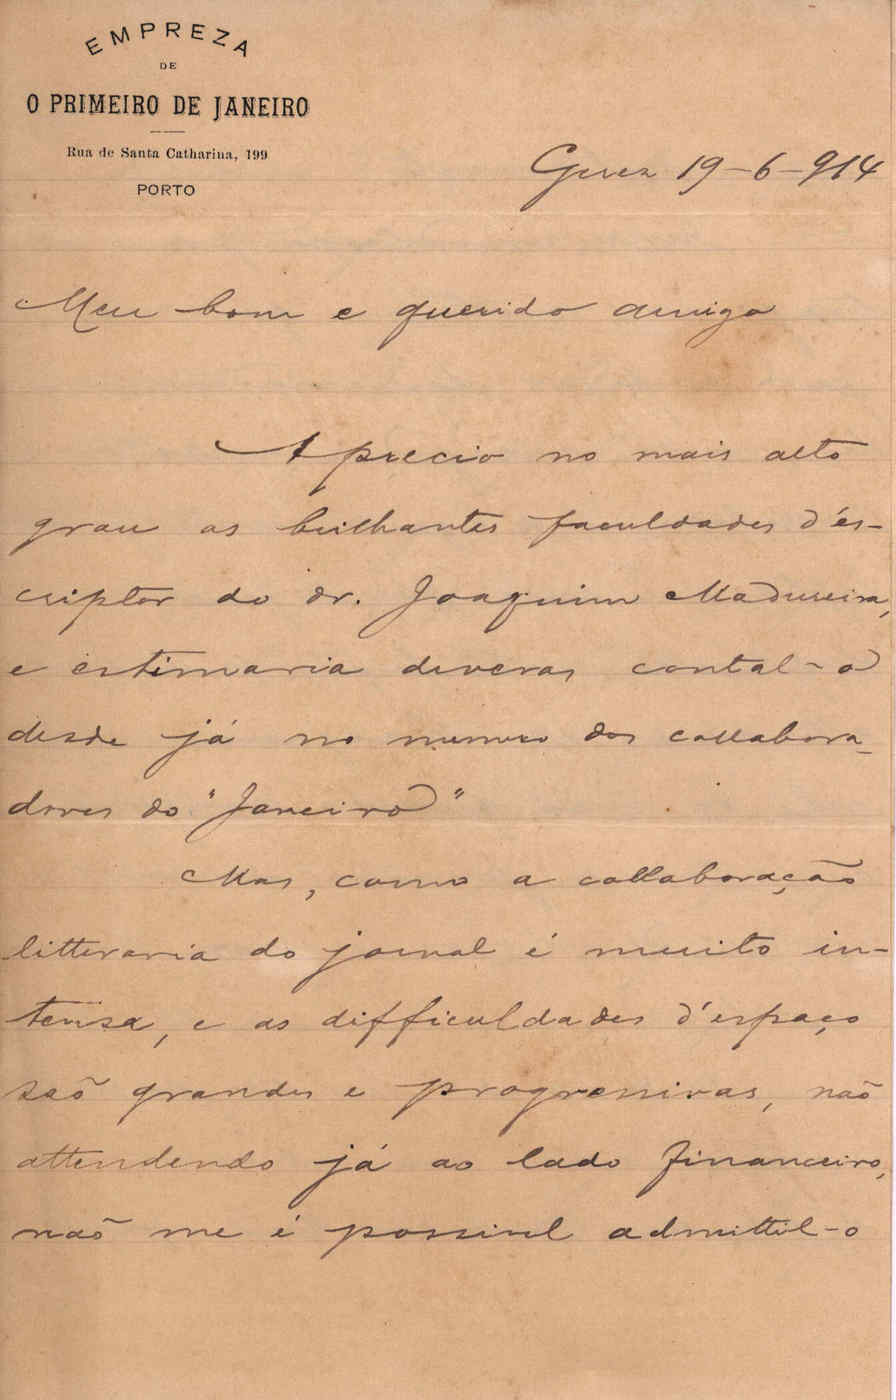 EMPREZA
DE
O PRIMEIRO DE JANEIRO
Rua de Santa Catharina, 199
PORTO
Gerez 19-6-914
Meu bom e querido amigo
Aprecio no mais alto
grau as brilhantes faculdades d'es-
criptor do dr. Joaquim Madureira,
e estimaria deveras contal-o
desde já no numero dos collabora-
dores do "Janeiro"
Mas, como a collaboração
litteraria do jornal é muito in-
tensa, e as difficuldades d'espaço
são grandes e progressivas, não
attendendo já ao lado financeiro,
não me é possivel admittil-o